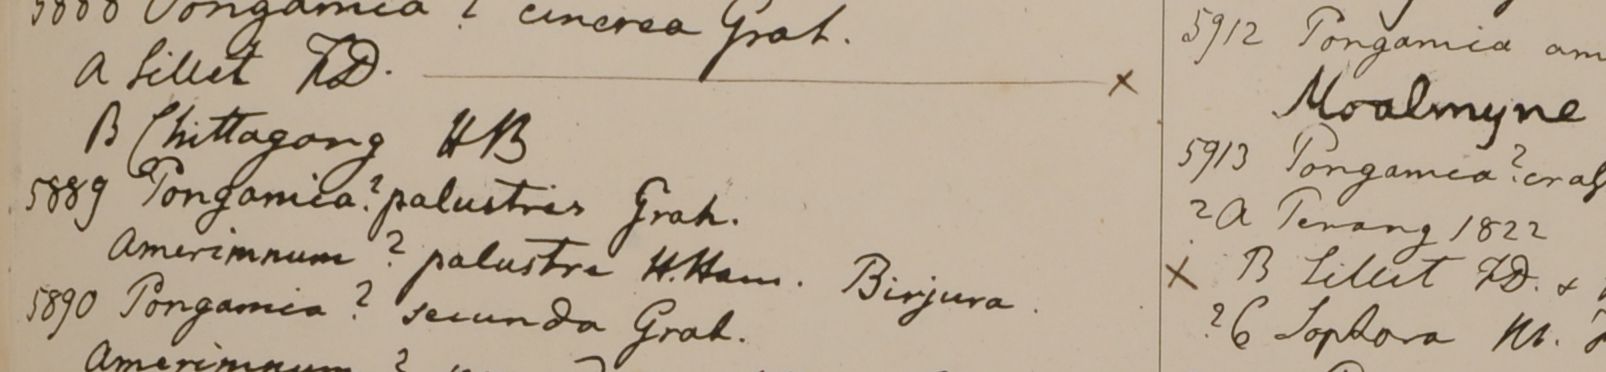 5888 Pongamia ? cinerea Grah.
A Sillet FD.
B Chittagong HB
5889 Pongamia? palustris Grah.
Amerimnum ? palustre H.Ham. Birjura.
5890 Pongamia ? secunda Grah.
Amerimnum ?
5912 Pongamia am
Moalmyne
5913 Pongamia? cras
? A Penang 1822
x B Sillet FD. &
? C Sophora